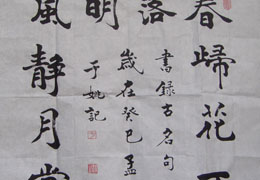 春歸花不
落
風靜月常
明
書錄古名句
歲在癸巳孟
于姚記